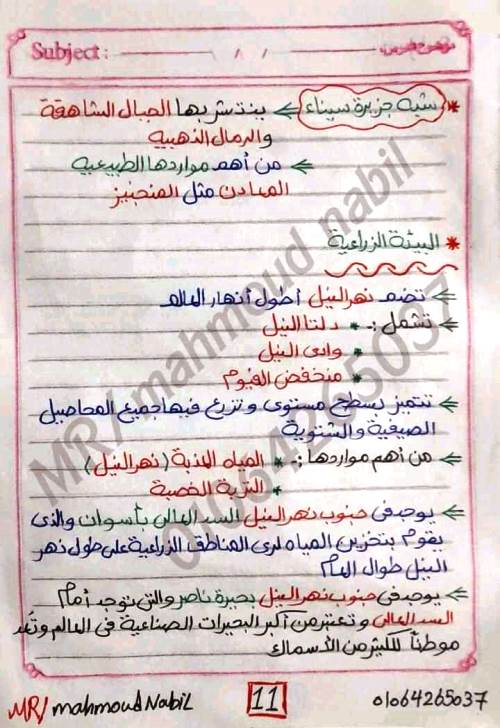 Subject: موضوع الدرس:
* شبه جزيرة سيناء ← ينتشر بها الجبال الشاهقة
والرمال الذهبية
← من أهم مواردها الطبيعية
المعادن مثل المنجنيز
* البيئة الزراعية
← تضم نهر النيل أطول أنهار العالم
← تشمل :- * دلتا النيل
* وادى النيل
* منخفض الفيوم
← تتميز بسطح مستوى وتزرع فيها جميع المحاصيل
الصيفية والشتوية
← من أهم مواردها :- * المياه العذبة (نهر النيل)
* التربة الخصبة
← يوجد فى جنوب نهر النيل السد العالى بأسوان والذى
يقوم بتخزين المياه لرى المناطق الزراعية على طول نهر
النيل طوال العام
← يوجد فى جنوب نهر النيل بحيرة ناصر والتى توجد أمام
السد العالى وتعتبر من أكبر البحيرات الصناعية فى العالم وتعد
موطناً للكثير من الأسماك
MR/ mahmoud Nabil 11 01064265037
MR/ mahmoud nabil
01064265037